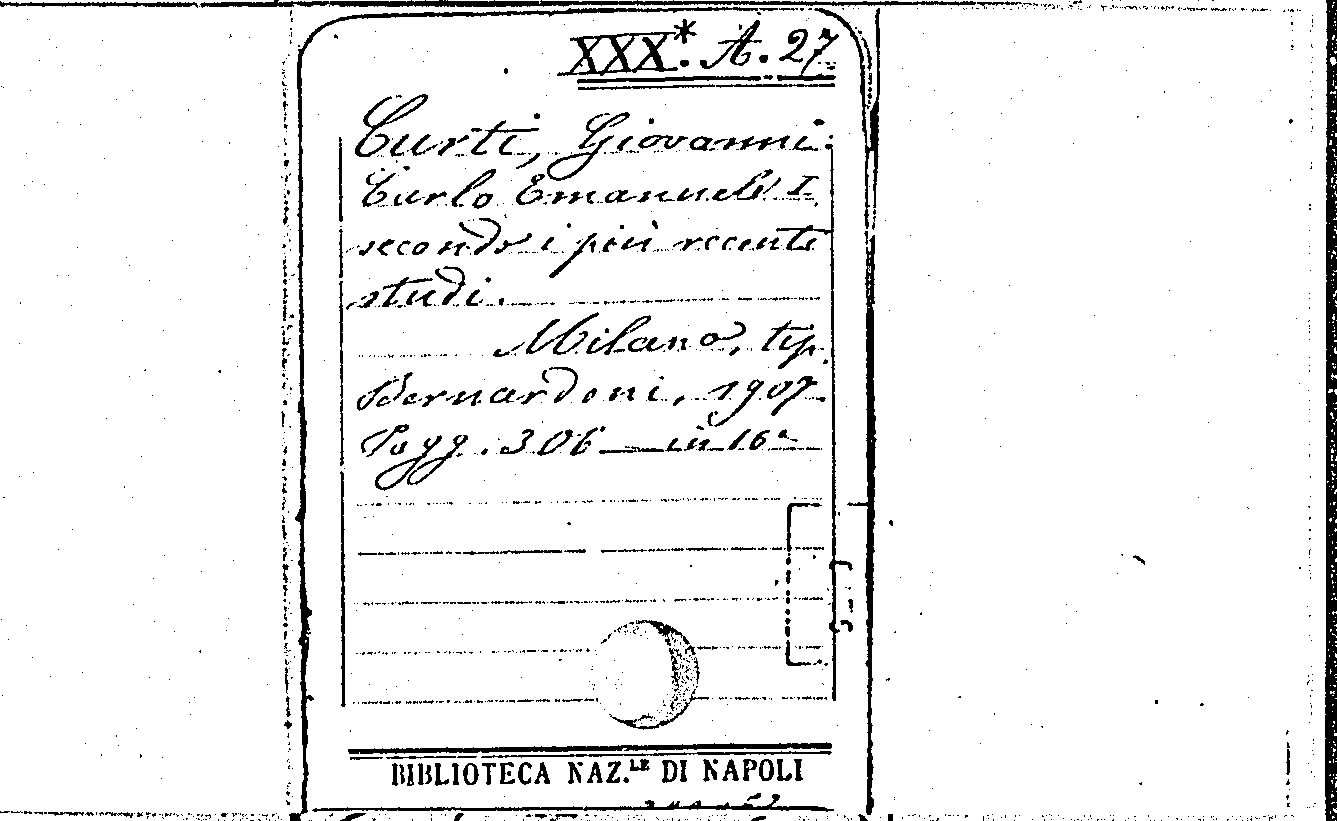 XXX.* A. 27
Curti, Giovanni.
Carlo Emanuele I
secondo i più recenti
studi.
Milano, tip.
Bernardoni, 1907.
Pagg. 306 — in 16°
BIBLIOTECA NAZ.LE DI NAPOLI